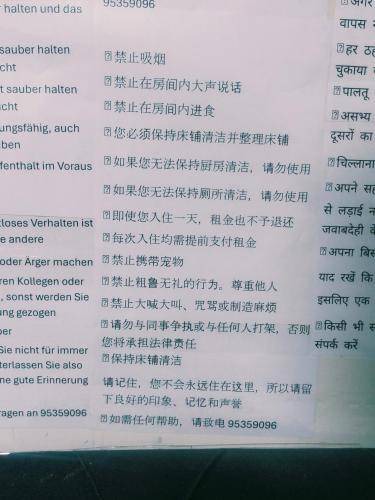 halten und das
sauber halten
cht
sauber halten
cht
ungsfähig, auch
ben
fenthalt im Voraus
tloses Verhalten ist
e andere
oder Ärger machen
ren Kollegen oder
, sonst werden Sie
ung gezogen
ber
Sie nicht für immer
terlassen Sie also
ne gute Erinnerung
ragen an 95359096
95359096
⍰禁止吸烟
⍰禁止在房间内大声说话
⍰禁止在房间内进食
⍰您必须保持床铺清洁并整理床铺
⍰如果您无法保持厨房清洁，请勿使用
⍰如果您无法保持厕所清洁，请勿使用
⍰即使您入住一天，租金也不予退还
⍰每次入住均需提前支付租金
⍰禁止携带宠物
⍰禁止粗鲁无礼的行为。尊重他人
⍰禁止大喊大叫、咒骂或制造麻烦
⍰请勿与同事争执或与任何人打架，否则
您将承担法律责任
⍰保持床铺清洁
请记住，您不会永远住在这里，所以请留
下良好的印象、记忆和声誉
⍰如需任何帮助，请致电 95359096
⍰अगर
वापस
⍰हर ठह
चुकाया
⍰पालतू
⍰असभ्य
दूसरों का
⍰चिल्लाना
⍰अपने सह
से लड़ाई न
जवाबदेही
⍰अपना बिस
याद रखें कि
इसलिए एक
⍰किसी भी
संपर्क करें